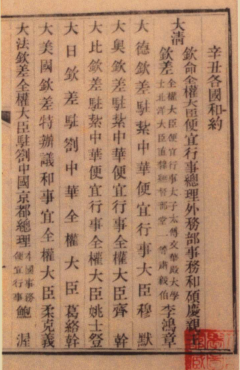 辛丑各國和約
大清
欽命全權大臣便宜行事總理外務部事務和碩慶親王
欽差
全權大臣便宜行事太子太傅文華殿大學
士北洋大臣直隸總督部堂一等肅毅伯
李鴻章
大德欽差駐紮中華便宜行事大臣穆默
大奧欽差駐紮中華便宜行事全權大臣齊幹
大比欽差駐紮中華便宜行事全權大臣姚士登
大日欽差駐劄中華全權大臣葛絡幹
大美國欽差特辦議和事宜全權大臣柔克義
大法欽差全權大臣駐劄中國京都總理
本國事務
便宜行事
鮑渥